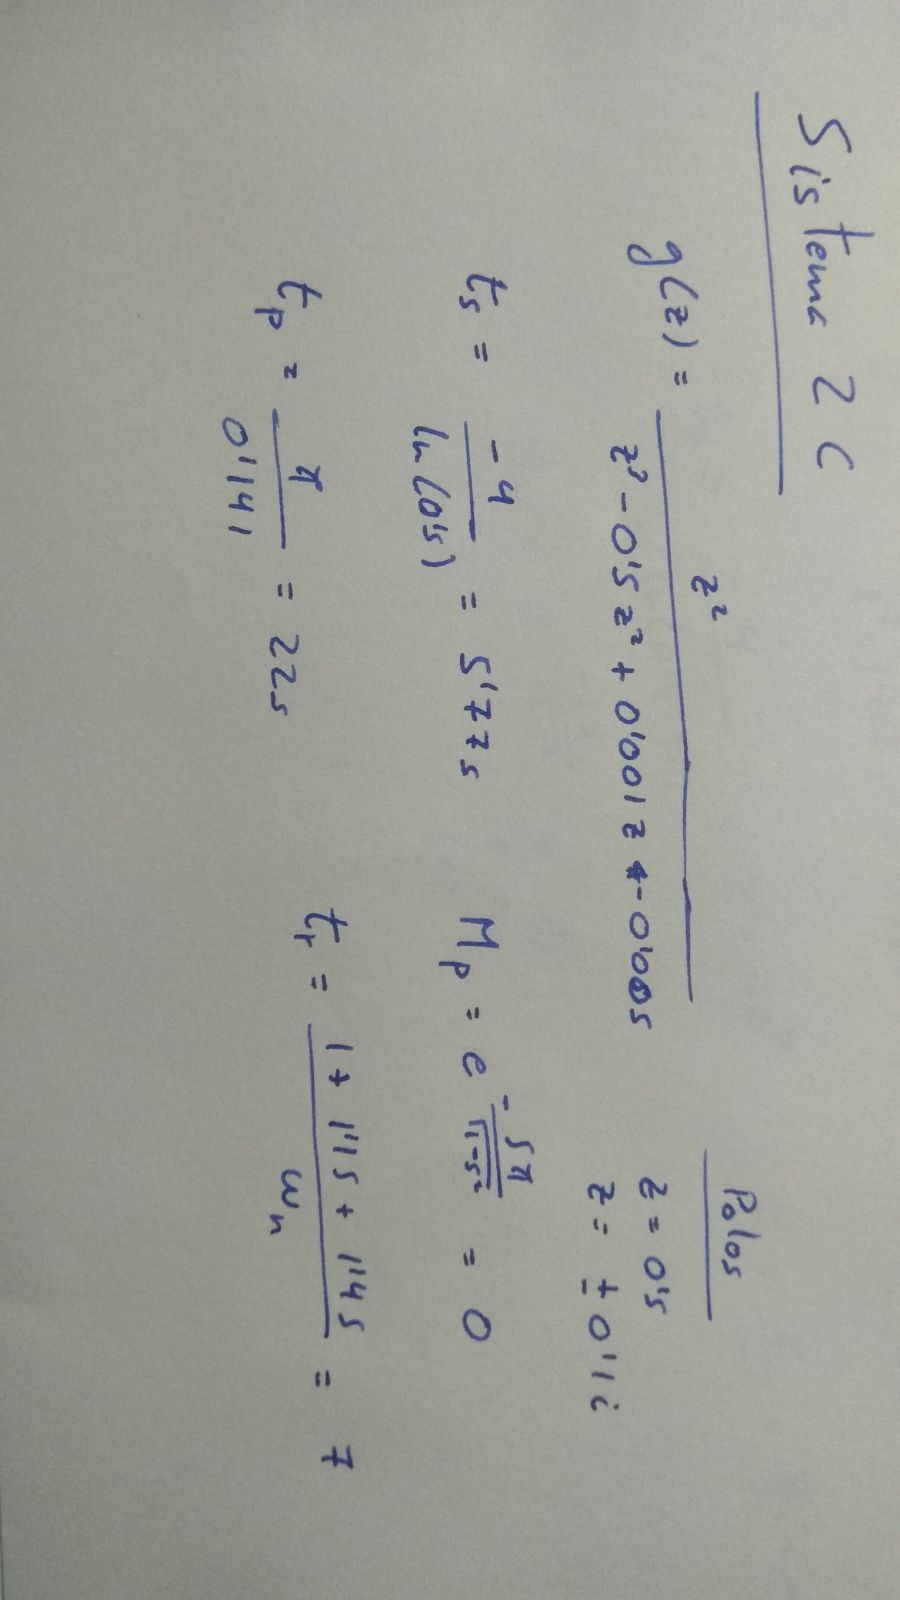 Sistema 2 C
g(z) = z² / (z³ - 0'5 z² + 0'001 z - 0'005)
Polos
z = 0'5
z = ± 0'1 i
ts = -4 / ln(0'5) = 5'77s
Mp = e^(-5π / √(1-5²)) = 0
tp = π / 0'141 = 22s
tr = (1 + 1'1 5 + 1'4 5) / ωn = 7